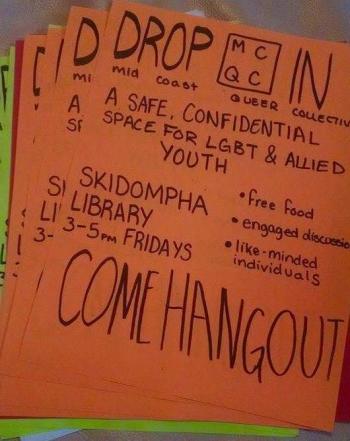 DROP MC QC IN
mid coast QUEER COLLECTIV
A SAFE, CONFIDENTIAL
SPACE FOR LGBT & ALLIED
YOUTH
SKIDOMPHA
LIBRARY
3-5PM FRIDAYS
• free food
• engaged discussio
• like-minded
individuals
COME HANGOUT
D
mi
A
SI
LI
3-